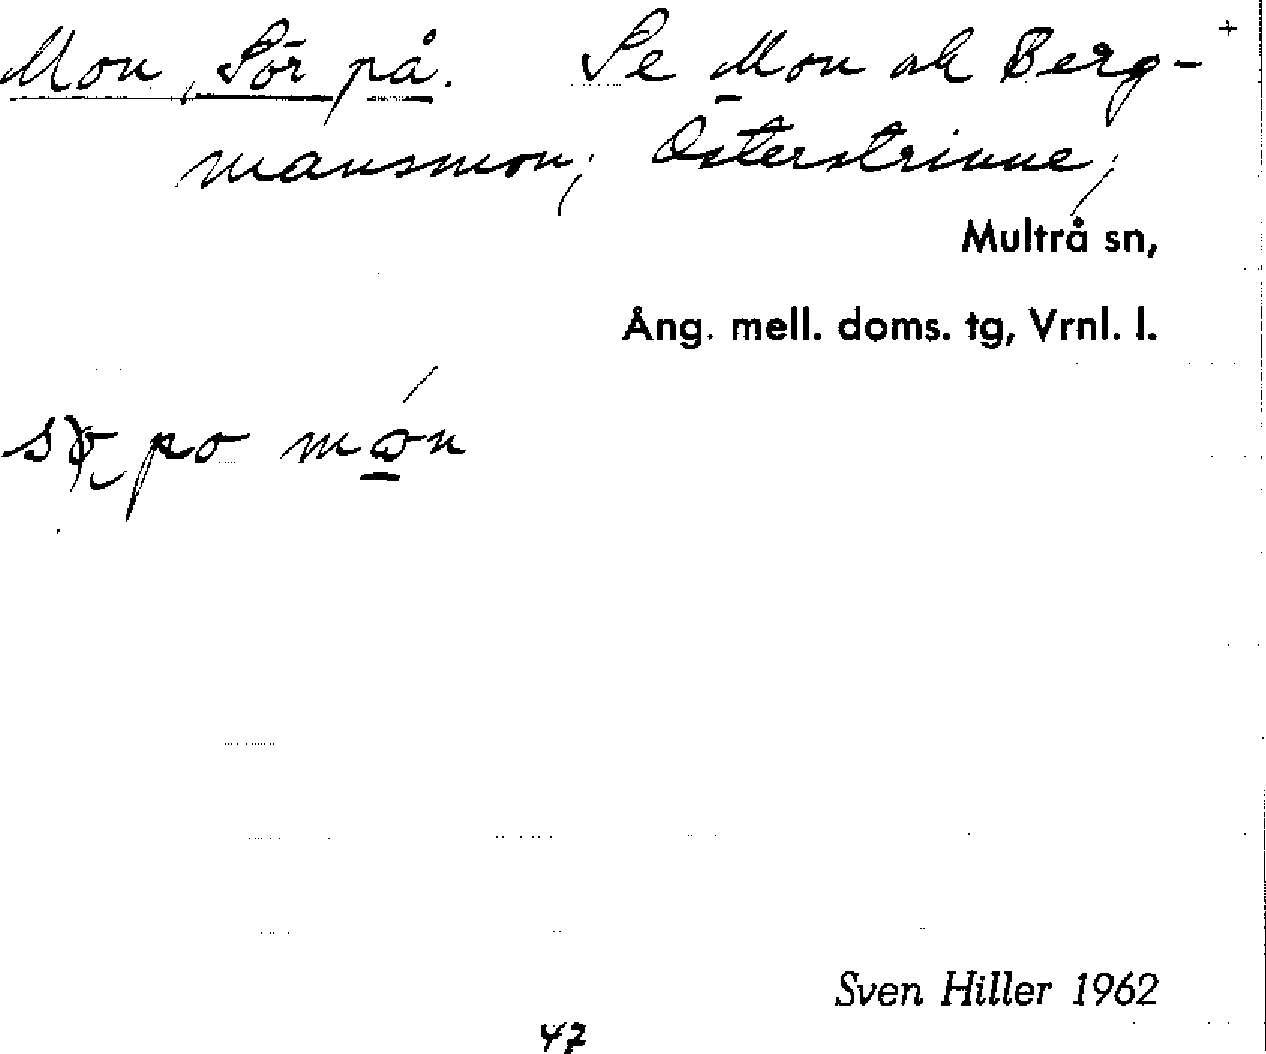 Mon, Sör på. Se Mon ok Berg- +
mansmon, Österstrinne,
Multrå sn,
Ång. mell. doms. tg, Vrnl. l.
po
Sven Hiller 1962
47